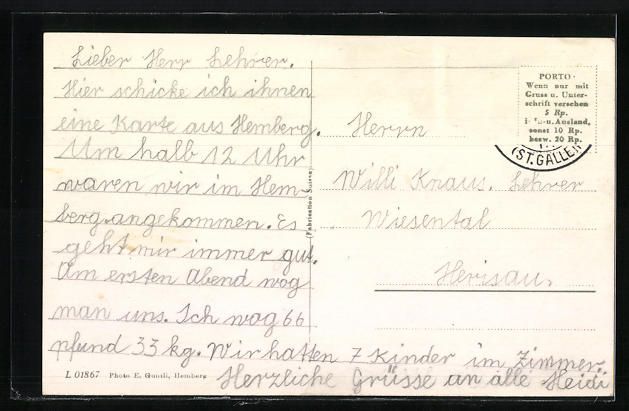 Lieber Herr Lehrer.
Hier schicke ich ihnen
eine Karte aus Hemberg.
Um halb 12 Uhr
waren wir im Hem-
berg angekommen. Es
geht mir immer gut.
Am ersten Abend wog
man uns. Ich wog 66
pfund 33 kg. Wir hatten 7 Kinder im Zimmer.
Herzliche Grüsse an alle Heidi
L 01867 Photo E. Guntli, Hemberg
(Fabrication Suisse)
PORTO
Wenn nur mit
Gruss u. Unter-
schrift versehen
5 Rp.
i. In-u. Ausland,
sonst 10 Rp.
bezw. 20 Rp.
(ST. GALLEN
Herrn
Willi Knaus. Lehrer
Wiesental
Herisau.